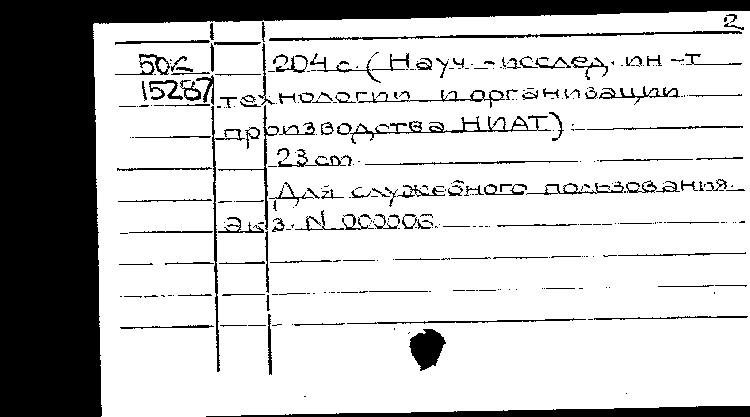 2
50K 204 с. (Науч.-исслед. ин-т
15287 технологии и организации
производства НИАТ).
23 cm.
Для служебного пользования.
экз. N 000003.